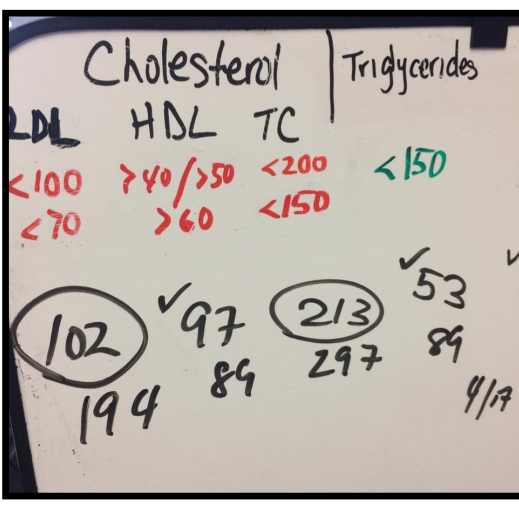 Cholesterol | Triglycerides
LDL HDL TC
<100 >40/>50 <200 <150
<70 >60 <150
102 ✓97 213 ✓53
194 89 297 89
4/17